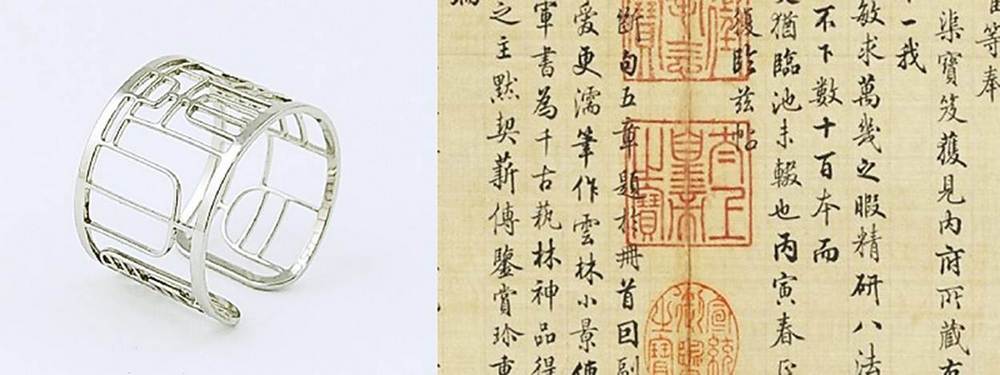 等奉
寶笈獲見內府所藏右
一我
敏求萬幾之暇精研八法
不下數十百本而
猶臨池未輟也丙寅春正
復臨茲帖
太上皇帝之寶
宣統御覽之寶
斷句五章題於冊首回副
愛更濡筆作雲林小景
軍書為千古藝林神品得
之主默契薪傳鑒賞珍重